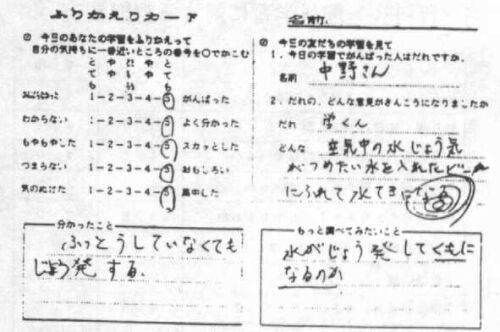 ふりかえりカード
名前
◎ 今日のあなたの学習をふりかえって
自分の気持ちに一番近いところの番号を○でかこむ
と や ふ や と
て や つ や て
も う も
1-2-3-4-5 がんばった
わからない 1-2-3-4-5 よく分かった
もやもやした 1-2-3-4-5 スカッとした
つまらない 1-2-3-4-5 おもしろい
気のぬけた 1-2-3-4-5 集中した
分かったこと
ふっとうしていなくても
じょう発する.
◎ 今日の友だちの学習を見て
1. 今日の学習でがんばった人はだれですか.
名前 中野さん
2. だれの、どんな意見がさんこうになりましたか
だれ 学くん
どんな 空気中の水じょう気
がつめたい水を入れたビーカー
にふれて水てきに
もっと調べてみたいこと
水がじょう発してくもに
なるのか